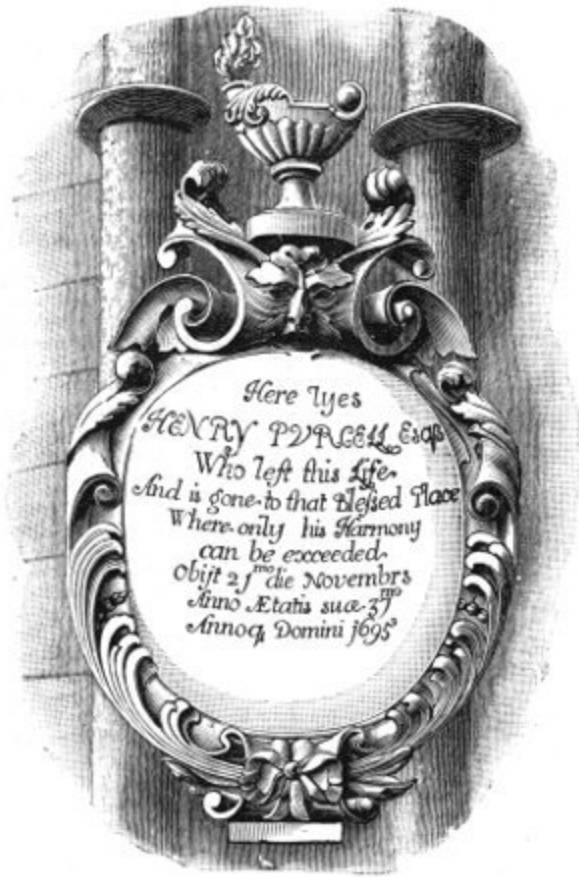 Here lyes
HENRY PURCELL Esqr.
Who left this Life
And is gone to that Blessed Place
Where only his Harmony
can be exceeded
Obijt 21mo die Novembrs
Anno Ætatis suæ 37mo
Annoq; Domini 1695